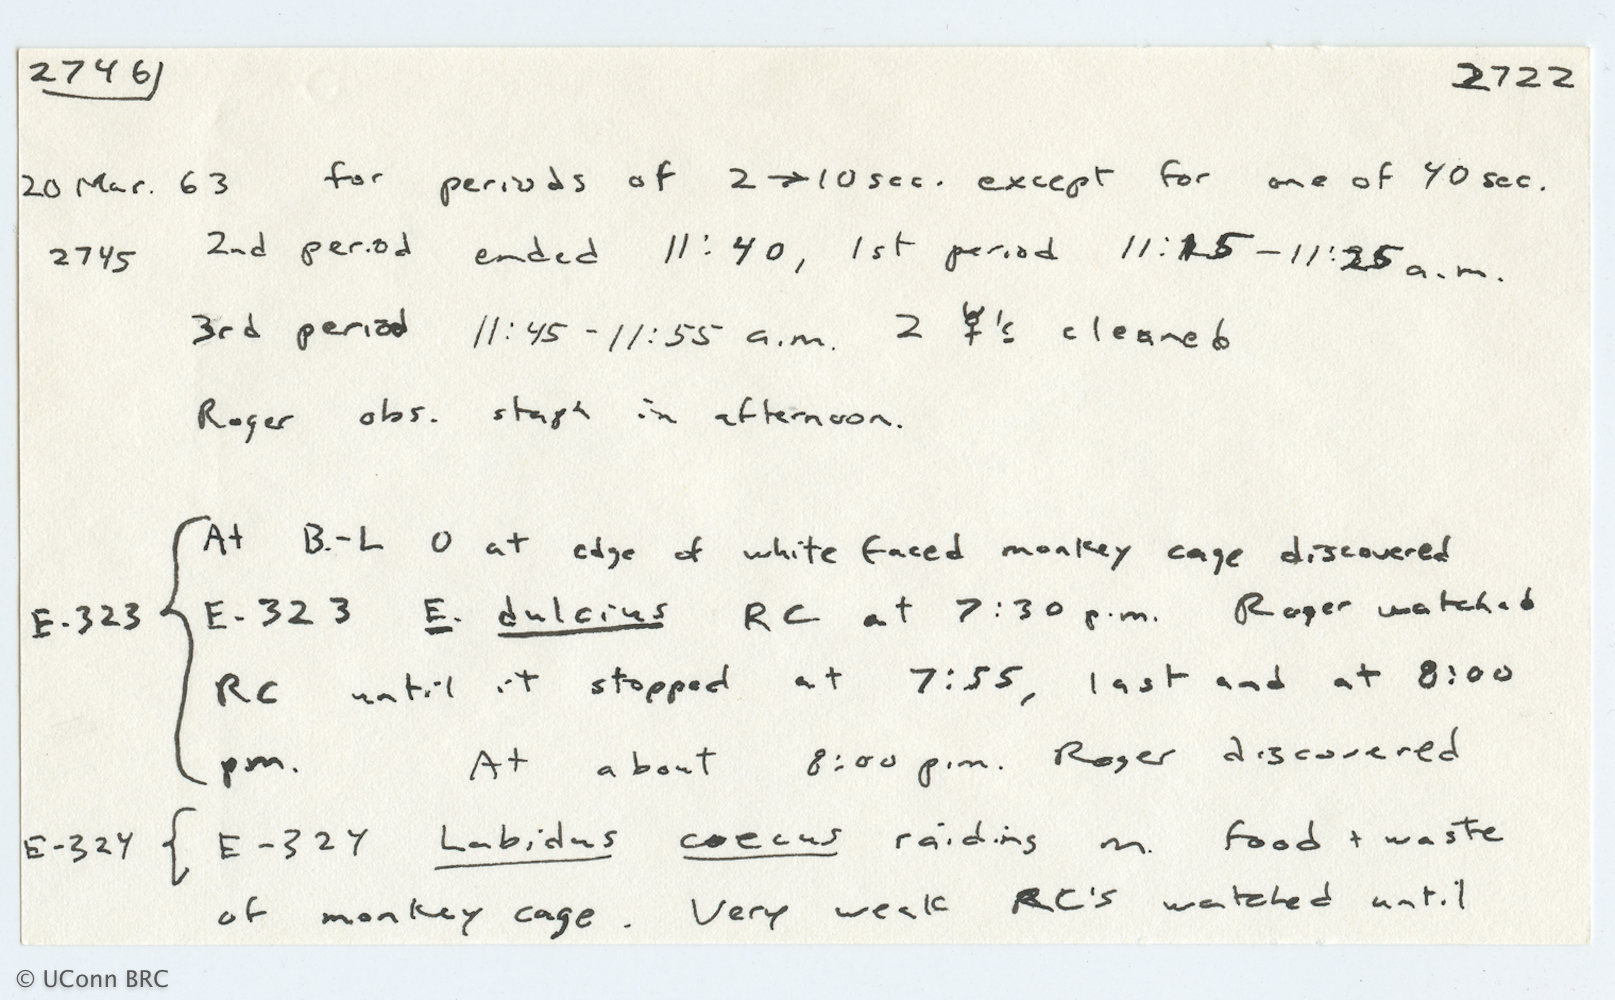 2746 2722
20 Mar. 63 for periods of 2→10 sec. except for one of 40 sec.
2745 2nd period ended 11:40, 1st period 11:15-11:25 a.m.
3rd period 11:45-11:55 a.m. 2 's cleaned
Roger obs. staph in afternoon.
At B.-L 0 at edge of white faced monkey cage discovered
E-323 E-323 E. dulcius RC at 7:30 p.m. Roger watched
RC until it stopped at 7:55, last and at 8:00
pm. At about 8:00 p.m. Roger discovered
E-324 E-324 Labidus coecus raiding on food + waste
of monkey cage. Very weak RC's watched until
© UConn BRC